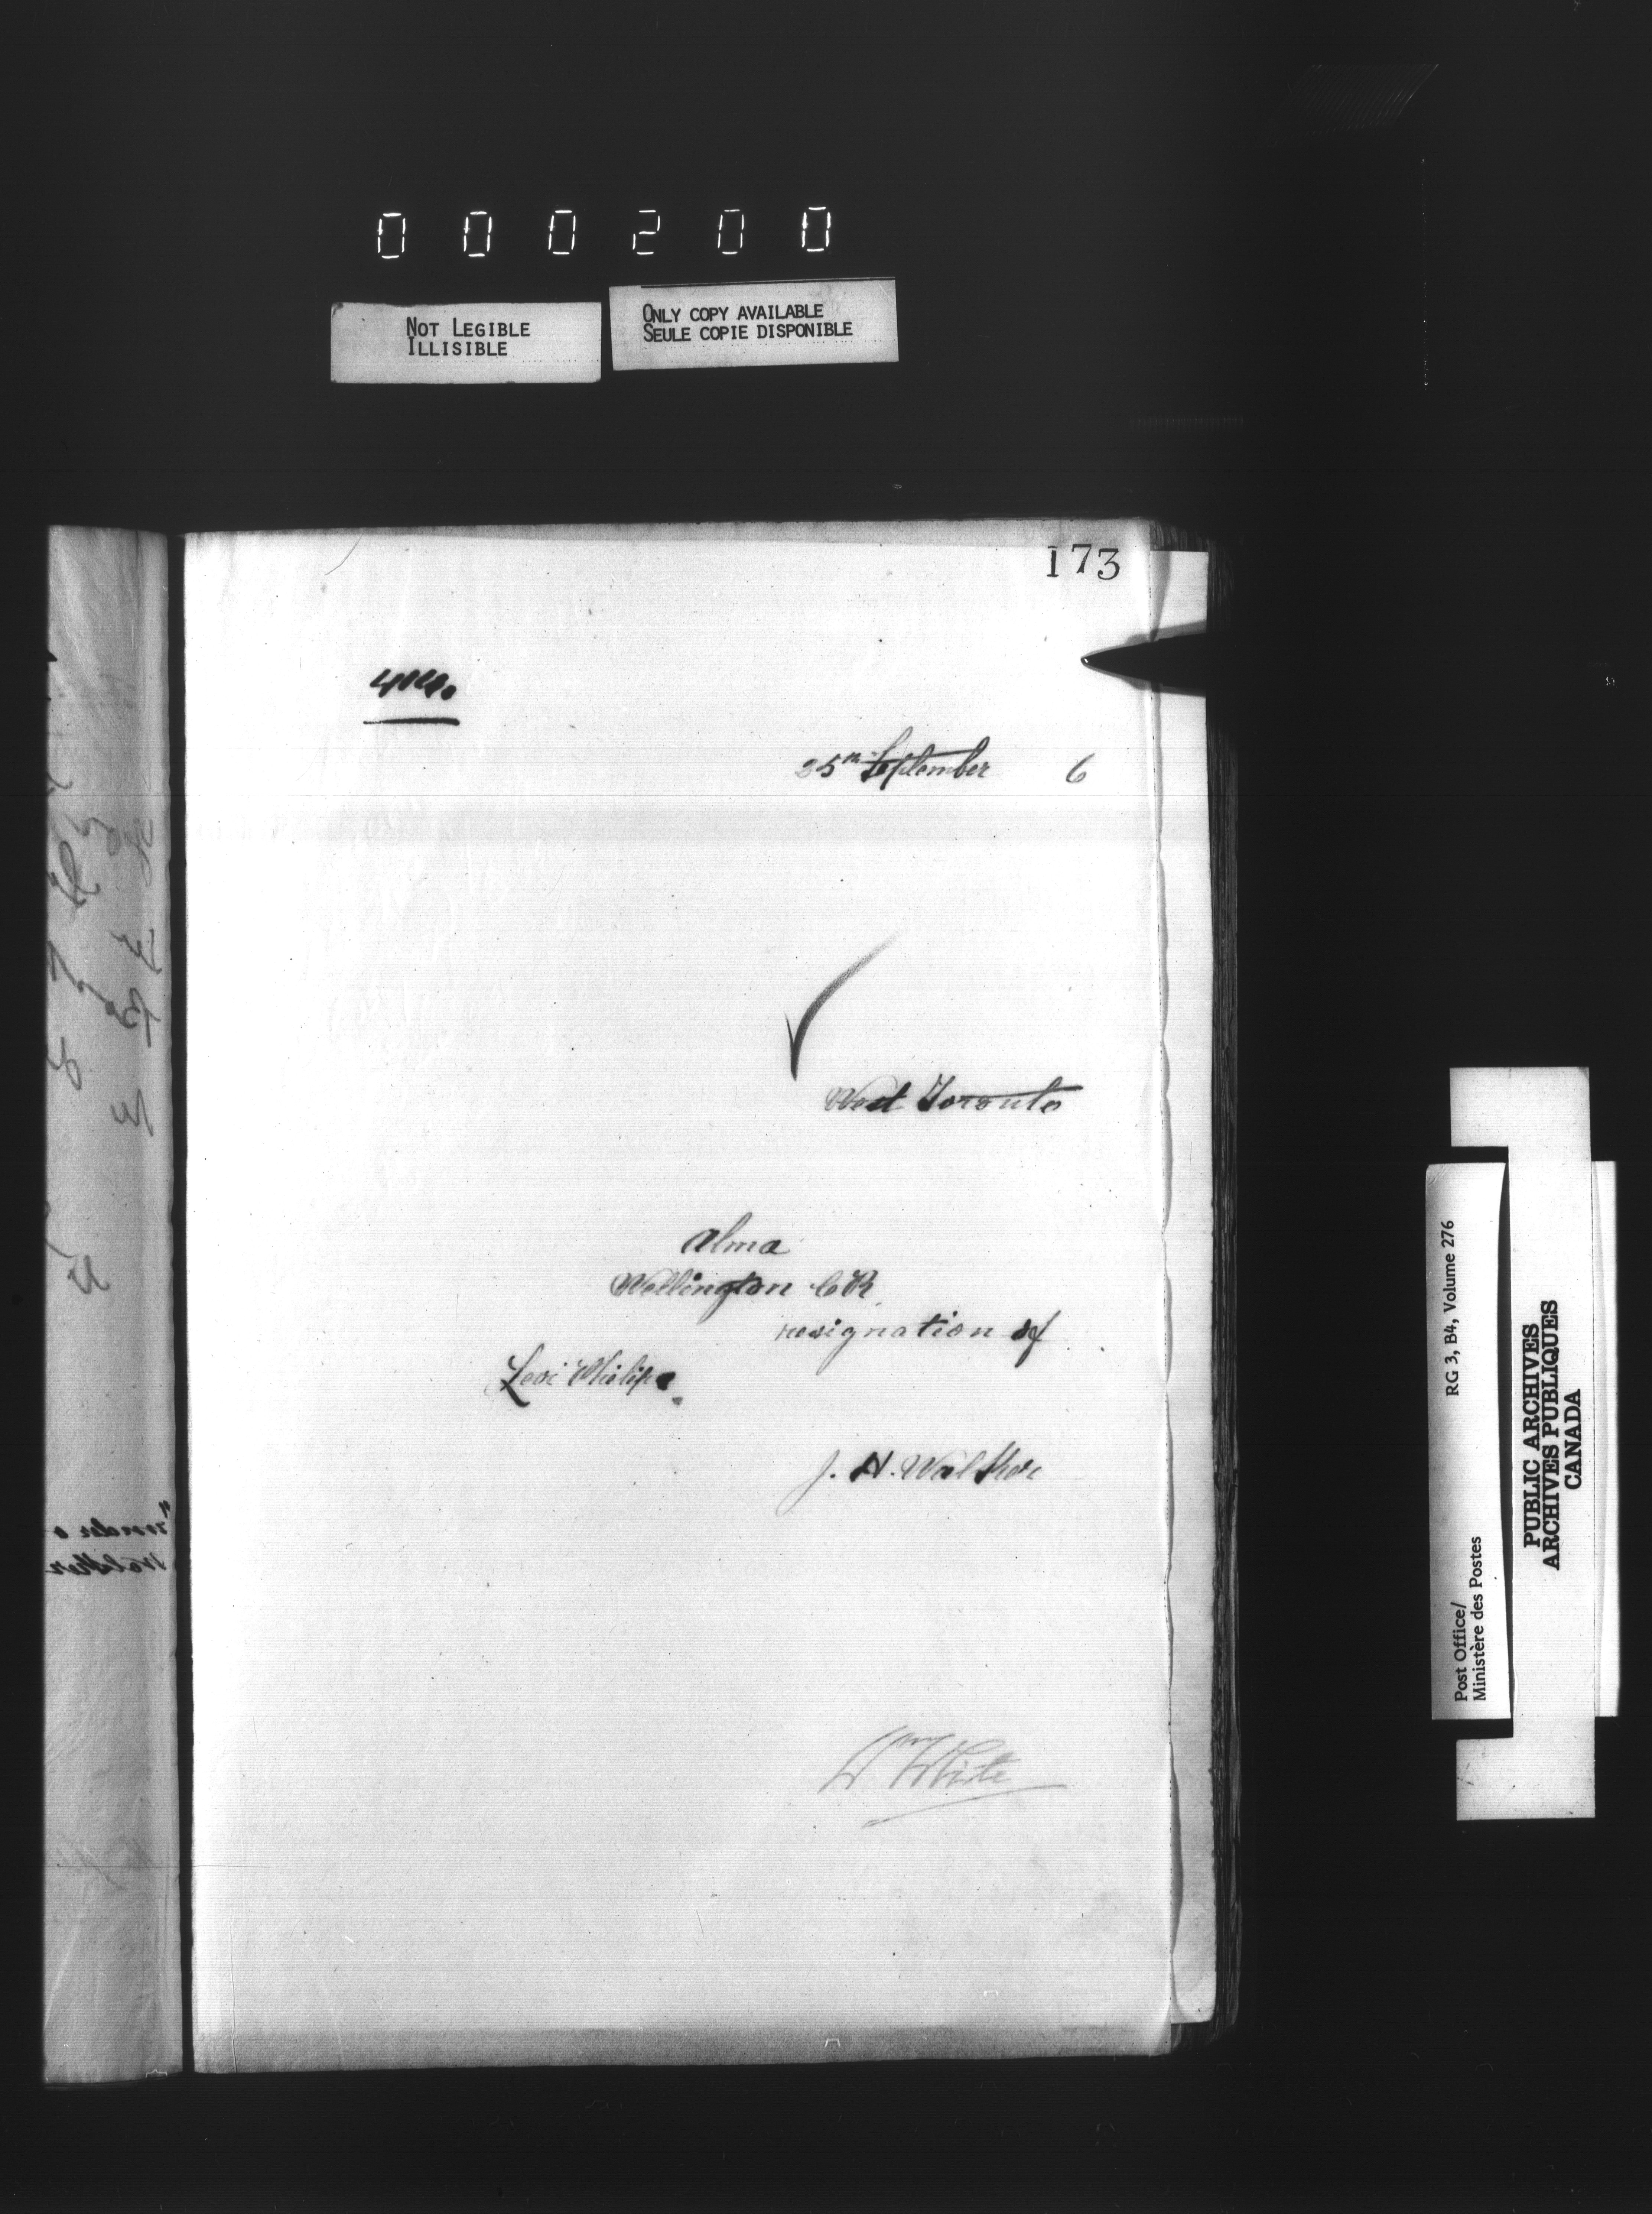 000200
NOT LEGIBLE
ILLISIBLE
ONLY COPY AVAILABLE
SEULE COPIE DISPONIBLE
173
25th September 6
West Toronto
Alma
Wellington C R
resignation of
Levi Philips
J. H. Walker
Wm White
Post Office/
Ministère des Postes
RG 3, B4, Volume 276
PUBLIC ARCHIVES
ARCHIVES PUBLIQUES
CANADA